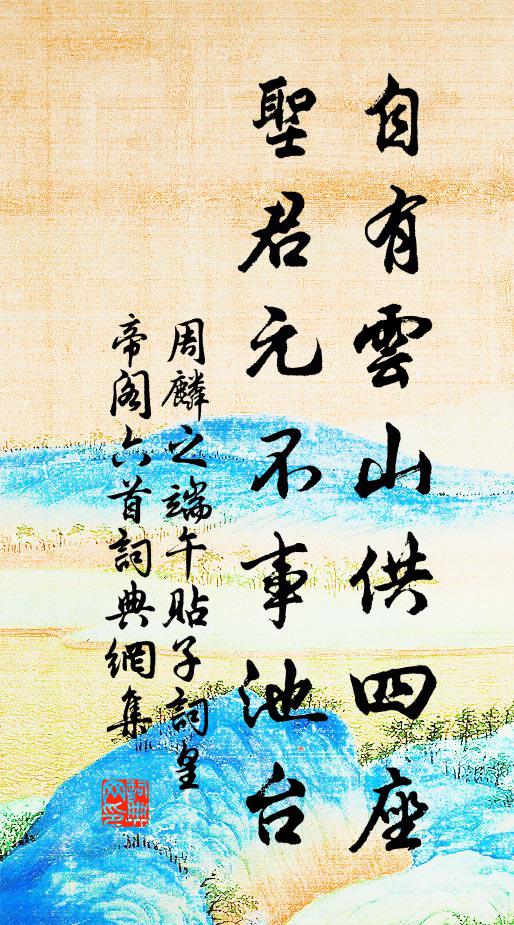 自有雲山供四座
聖君元不事池台
周麟之端午貼子詞皇
帝閣六首詞典網集